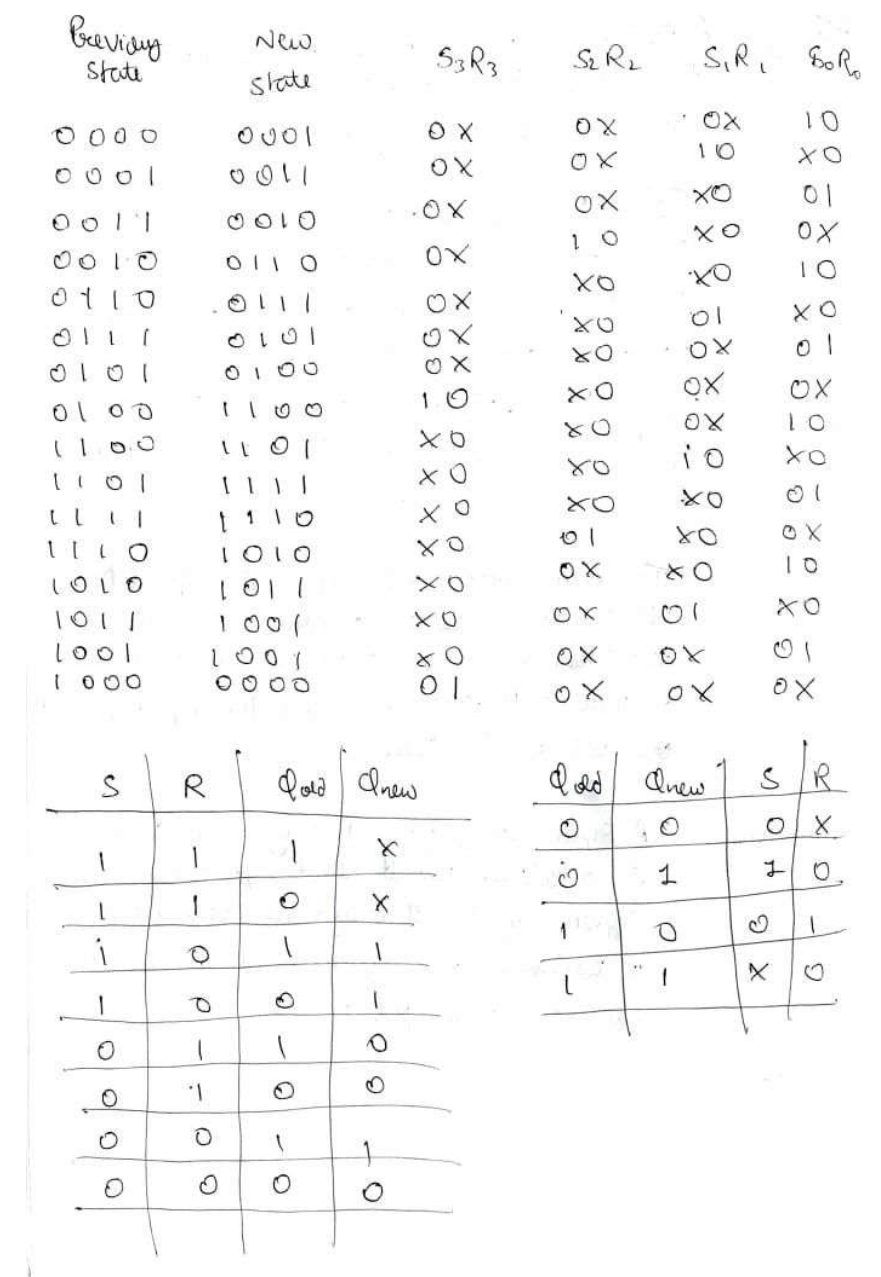 Previous New S3R3 S2R2 S1R1 S0R0
state state
0000 0001 0X 0X 0X 10
0001 0011 0X 0X 10 X0
0011 0010 0X 0X X0 01
0010 0110 0X 10 X0 0X
0110 0111 0X X0 X0 10
0111 0101 0X X0 01 X0
0101 0100 0X X0 0X 01
0100 1100 10 X0 0X 0X
1100 1101 X0 X0 0X 10
1101 1111 X0 X0 10 X0
1111 1110 X0 X0 X0 01
1110 1010 X0 01 X0 0X
1010 1011 X0 0X X0 10
1011 1001 X0 0X 01 X0
1001 1001 X0 0X 0X 01
1000 0000 01 0X 0X 0X
S R Qold Qnew
1 1 1 X
1 1 0 X
1 0 1 1
1 0 0 1
0 1 1 0
0 1 0 0
0 0 1 1
0 0 0 0
Qold Qnew S R
0 0 0 X
0 1 1 0
1 0 0 1
1 1 X 0